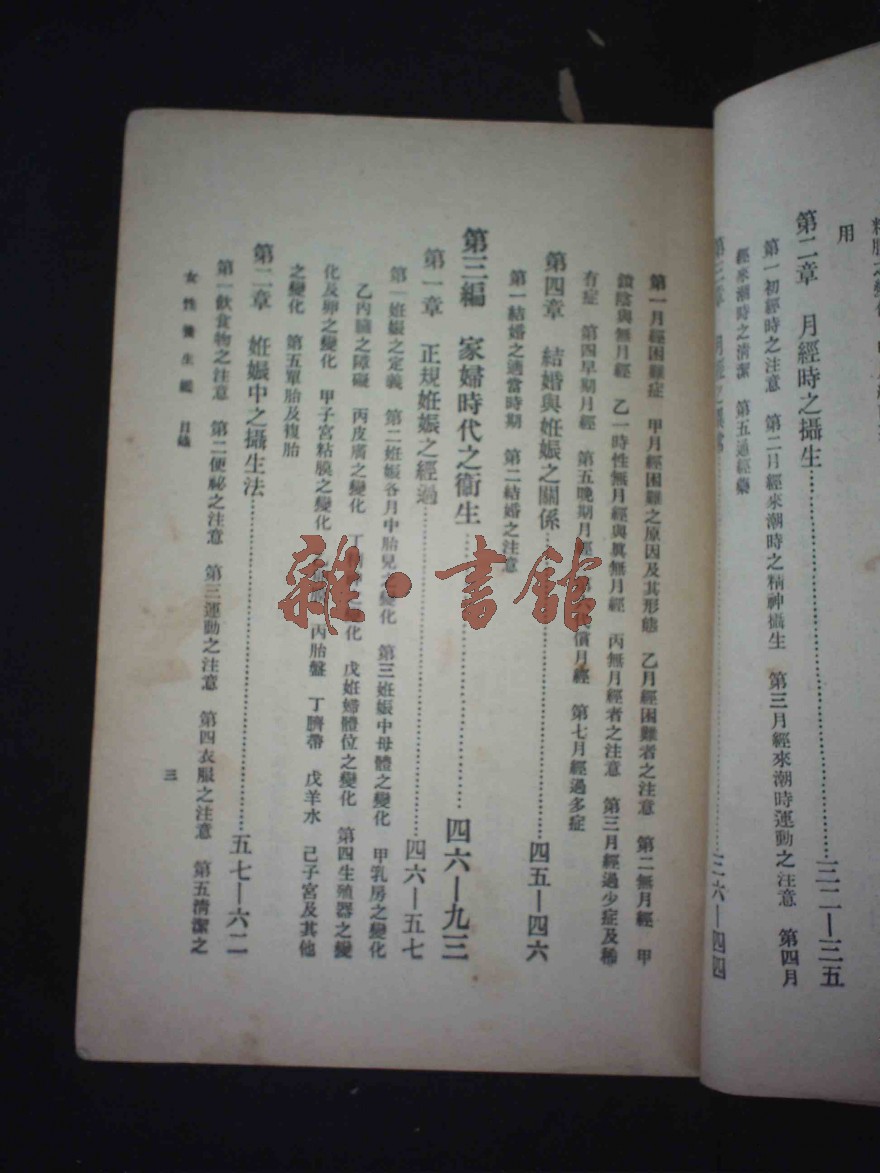 用
第二章 月經時之攝生 三二—三五
第一初經時之注意 第二月經來潮時之精神攝生 第三月經來潮時運動之注意 第四月
經來潮時之清潔 第五通經藥
三六—四四
第一月經困難症 甲月經困難之原因及其形態 乙月經困難者之注意 第二無月經 甲
鎖陰與無月經 乙一時性無月經與眞無月經 丙無月經者之注意 第三月經過少症及稀
有症 第四早期月經 第五晚期月經 償月經 第七月經過多症
第四章 結婚與姙娠之關係 四五—四六
第一結婚之適當時期 第二結婚之注意
第三編 家婦時代之衞生 四六—九三
第一章 正規姙娠之經過 四六—五七
第一姙娠之定義 第二姙娠各月中胎兒之變化 第三姙娠中母體之變化 甲乳房之變化
乙內臟之障礙 丙皮膚之變化 丁 化 戊姙婦體位之變化 第四生殖器之變
化及卵之變化 甲子宮粘膜之變化 丙胎盤 丁臍帶 戊羊水 己子宮及其他
之變化 第五單胎及複胎
第二章 姙娠中之攝生法 五七—六二
第一飲食物之注意 第二便祕之注意 第三運動之注意 第四衣服之注意 第五清潔之
女性養生鑑 目錄
三
雜·書館